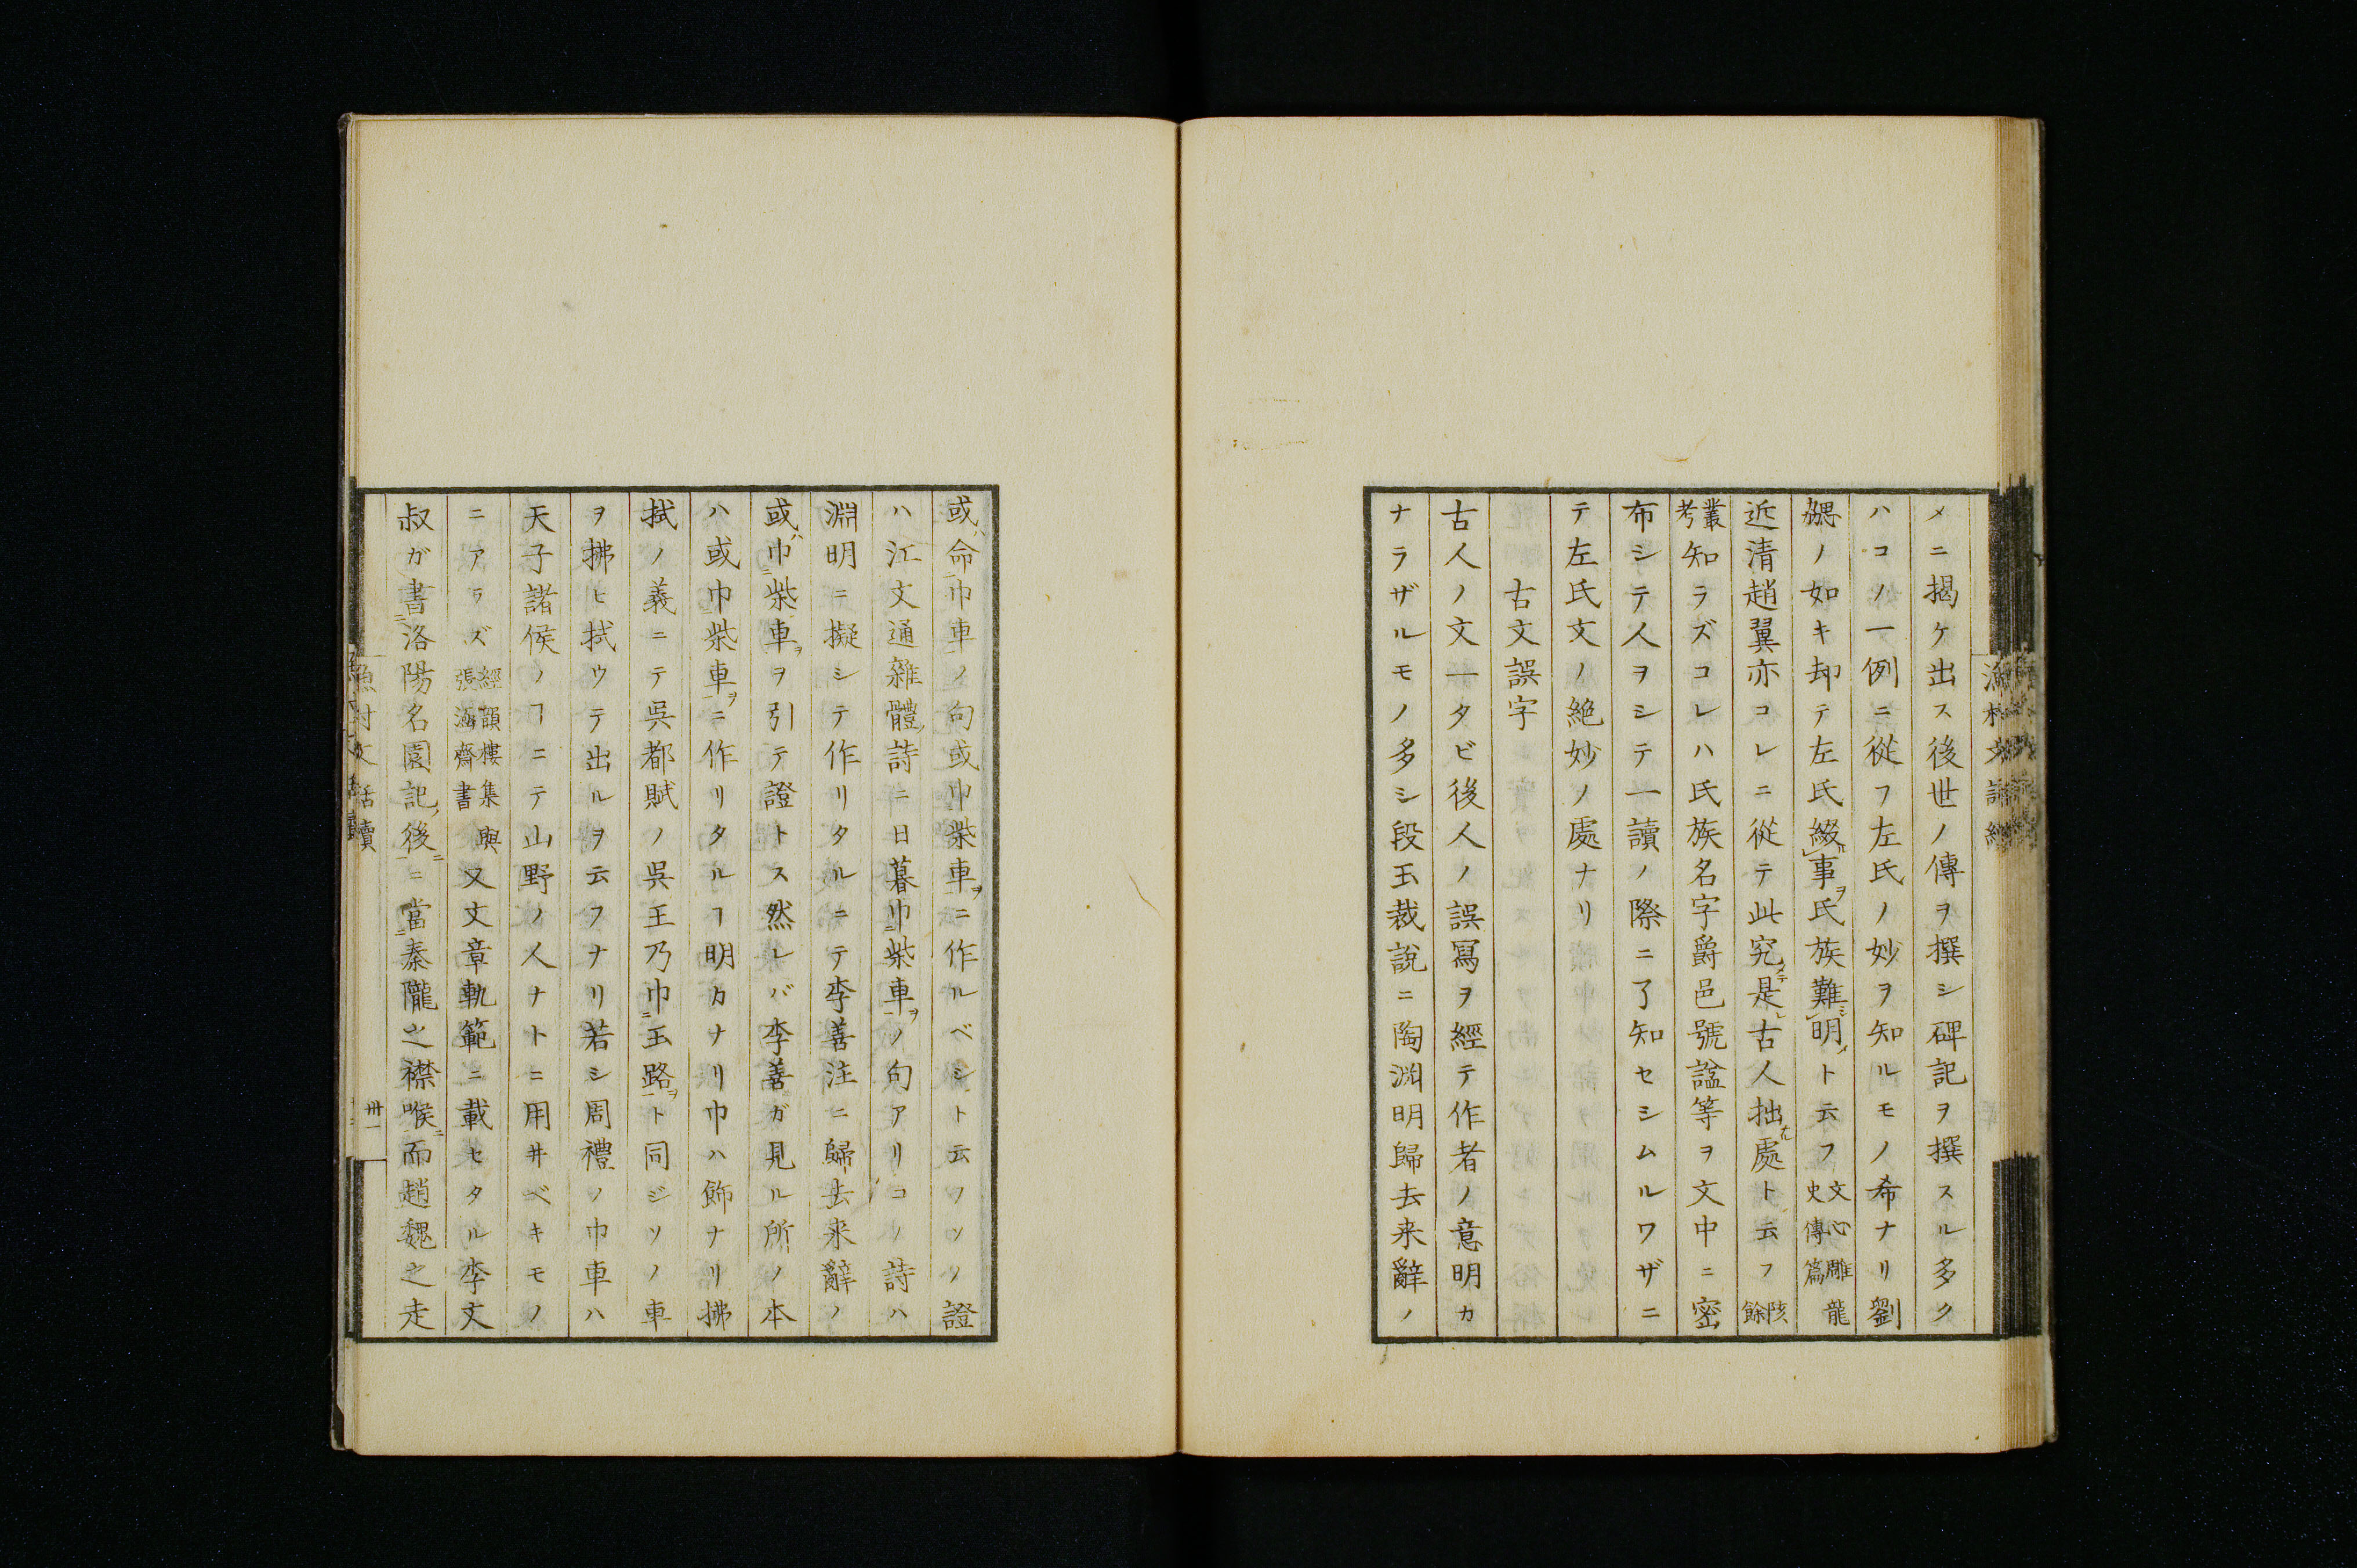 メニ揭ケ出ス後世ノ傳ヲ撰シ碑記ヲ撰スル多ク
ハコノ一例ニ從フ左氏ノ妙ヲ知ルモノ希ナリ劉
勰ノ如キ却テ左氏綴事氏族難明ト云フ文心雕龍史傳篇
近淸趙翼亦コレニ從テ此究是古人拙處ト云フ陔餘
叢考知ラズコレハ氏族名字爵邑號諡等ヲ文中ニ密
布シテ人ヲシテ一讀ノ際ニ了知セシムルワザニ
テ左氏文ノ絶妙ノ處ナリ
古文誤字
古人ノ文一タビ後人ノ誤寫ヲ經テ作者ノ意明カ
ナラザルモノ多シ段玉裁說ニ陶淵明歸去來辭ノ
或ハ命巾車ノ句或巾柴車ヲニ作ルベシト云フソノ證
ハ江文通雜體ノ詩ニ日暮巾柴車ヲノ句アリコノ詩ハ
淵明ニ擬シテ作リタルニテ李善注ニ歸去來辭ノ
或ハ巾柴車ヲヲ引テ證トス然レバ李善ガ見ル所ノ本
ハ或巾柴車ヲニ作リタルヿ明カナリ巾ハ飾ナリ拂
拭ノ義ニテ吳都賦ノ吳王乃巾玉路ヲト同ジソノ車
ヲ拂ヒ拭ウテ出ルヲ云フナリ若シ周禮ノ巾車ハ
天子諸侯ノヿニテ山野ノ人ナトニ用井ベキモノ
ニアラズ經韻樓集與張涵齋書又文章軌範ニ載セタル李文
叔ガ書洛陽名園記ノ後ニ當秦隴之襟喉而趙魏之走
漁村文話續
卅一